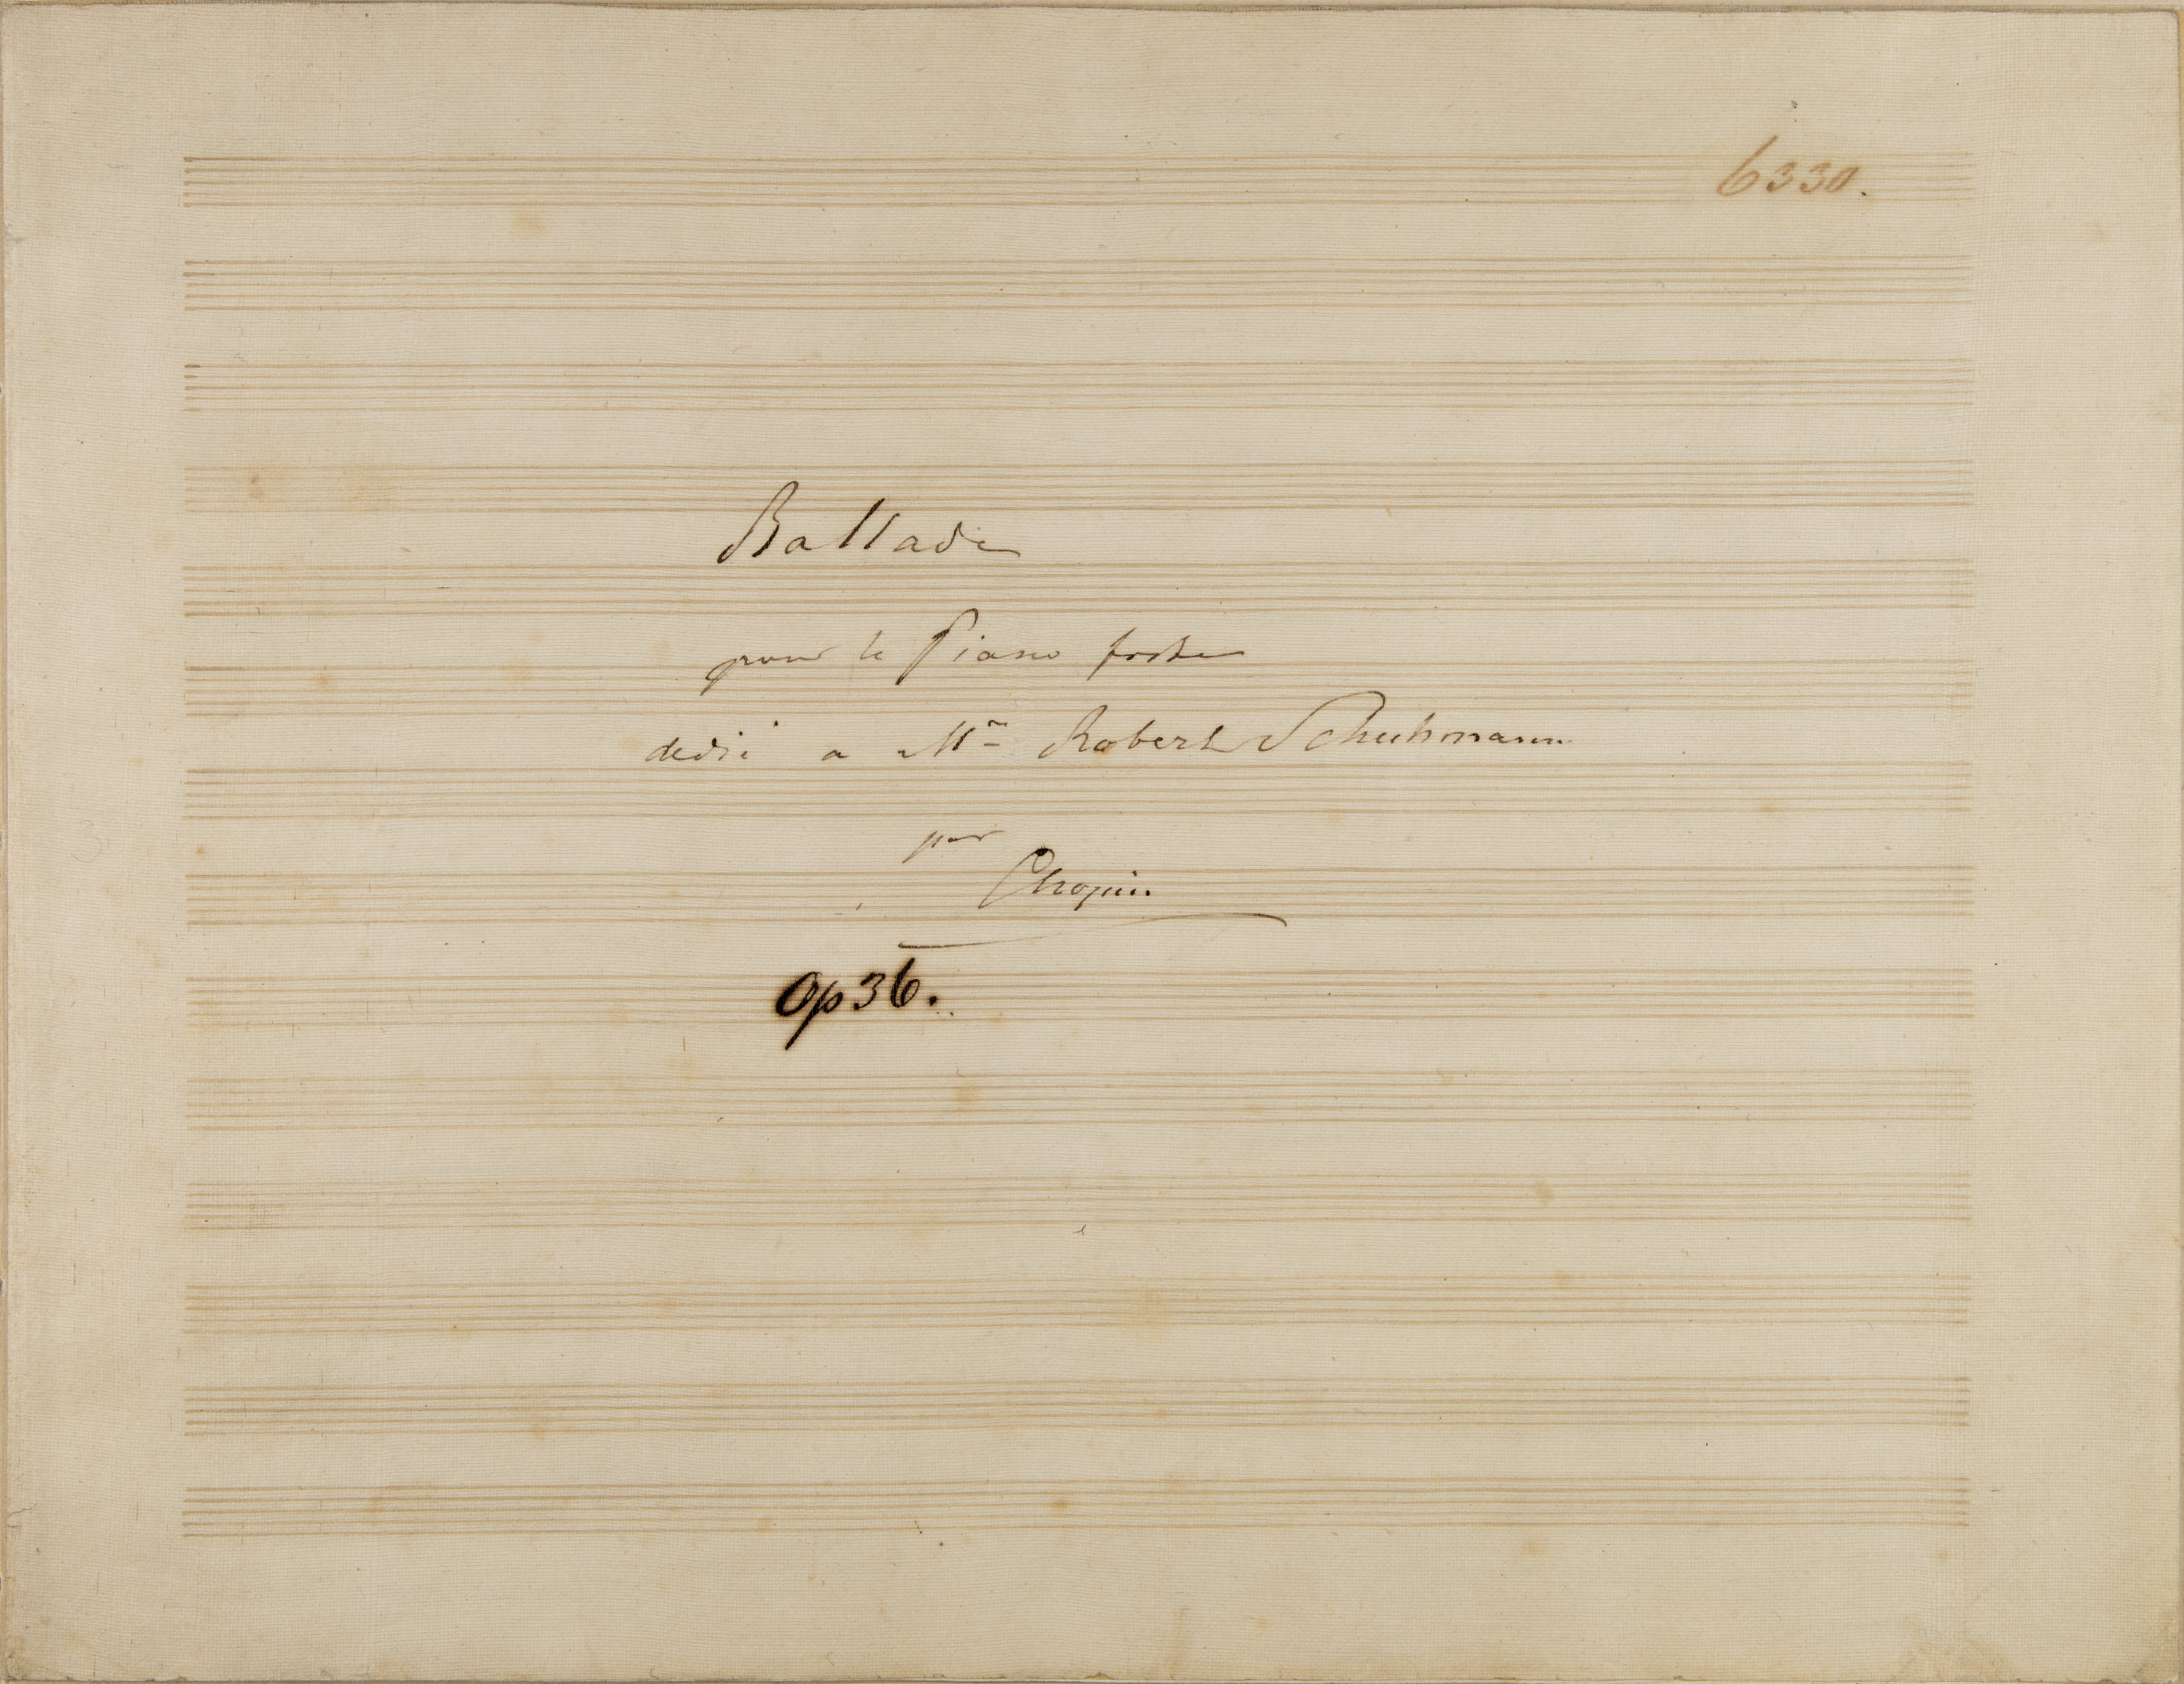 6330.
Ballade
pour le Piano forte
dedié a Mr Robert Schuhmann
par
Chopin
Op 36.